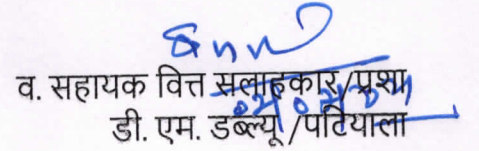 व. सहायक वित्त सलाहकार/प्रशा
डी. एम. डब्ल्यू /पटियाला